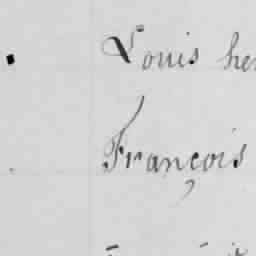 Louis
François